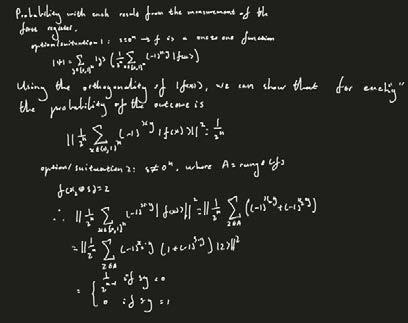 Probability with each result from the measurement of the
first register.
option/situation 1: s=0ⁿ → f is a one to one function
|ψ⟩ = Σ_{y∈{0,1}ⁿ} |y⟩ (1/2ⁿ Σ_{x∈{0,1}ⁿ} (-1)^{x·y} |f(x)⟩)
Using the orthogonality of |f(x)⟩, we can show that for each "y"
the probability of the outcome is
|| 1/2ⁿ Σ_{x∈{0,1}ⁿ} (-1)^{x·y} |f(x)⟩ ||² = 1/2ⁿ
option/situation 2: s≠0ⁿ, where A = range(f)
f(x_z ⊕ s) = z
∴ || 1/2ⁿ Σ_{x∈{0,1}ⁿ} (-1)^{x·y} |f(x)⟩ ||² = || 1/2ⁿ Σ_{z∈A} ((-1)^{x_z·y} + (-1)
= || 1/2ⁿ Σ_{z∈A} (-1)^{x_z·y} (1+(-1)^{s·y}) |z⟩ ||²
= { 1/2ⁿ⁻¹ if s·y = 0
0 if s·y = 1